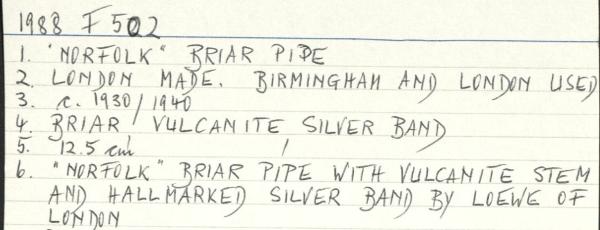 1988 F 502
1. "NORFOLK" BRIAR PIPE
2. LONDON MADE. BIRMINGHAM AND LONDON USED
3. c. 1930/1940
4. BRIAR/ VULCANITE SILVER BAND
5. 12.5 cm
6. "NORFOLK" BRIAR PIPE WITH VULCANITE STEM
AND HALLMARKED SILVER BAND BY LOEWE OF
LONDON